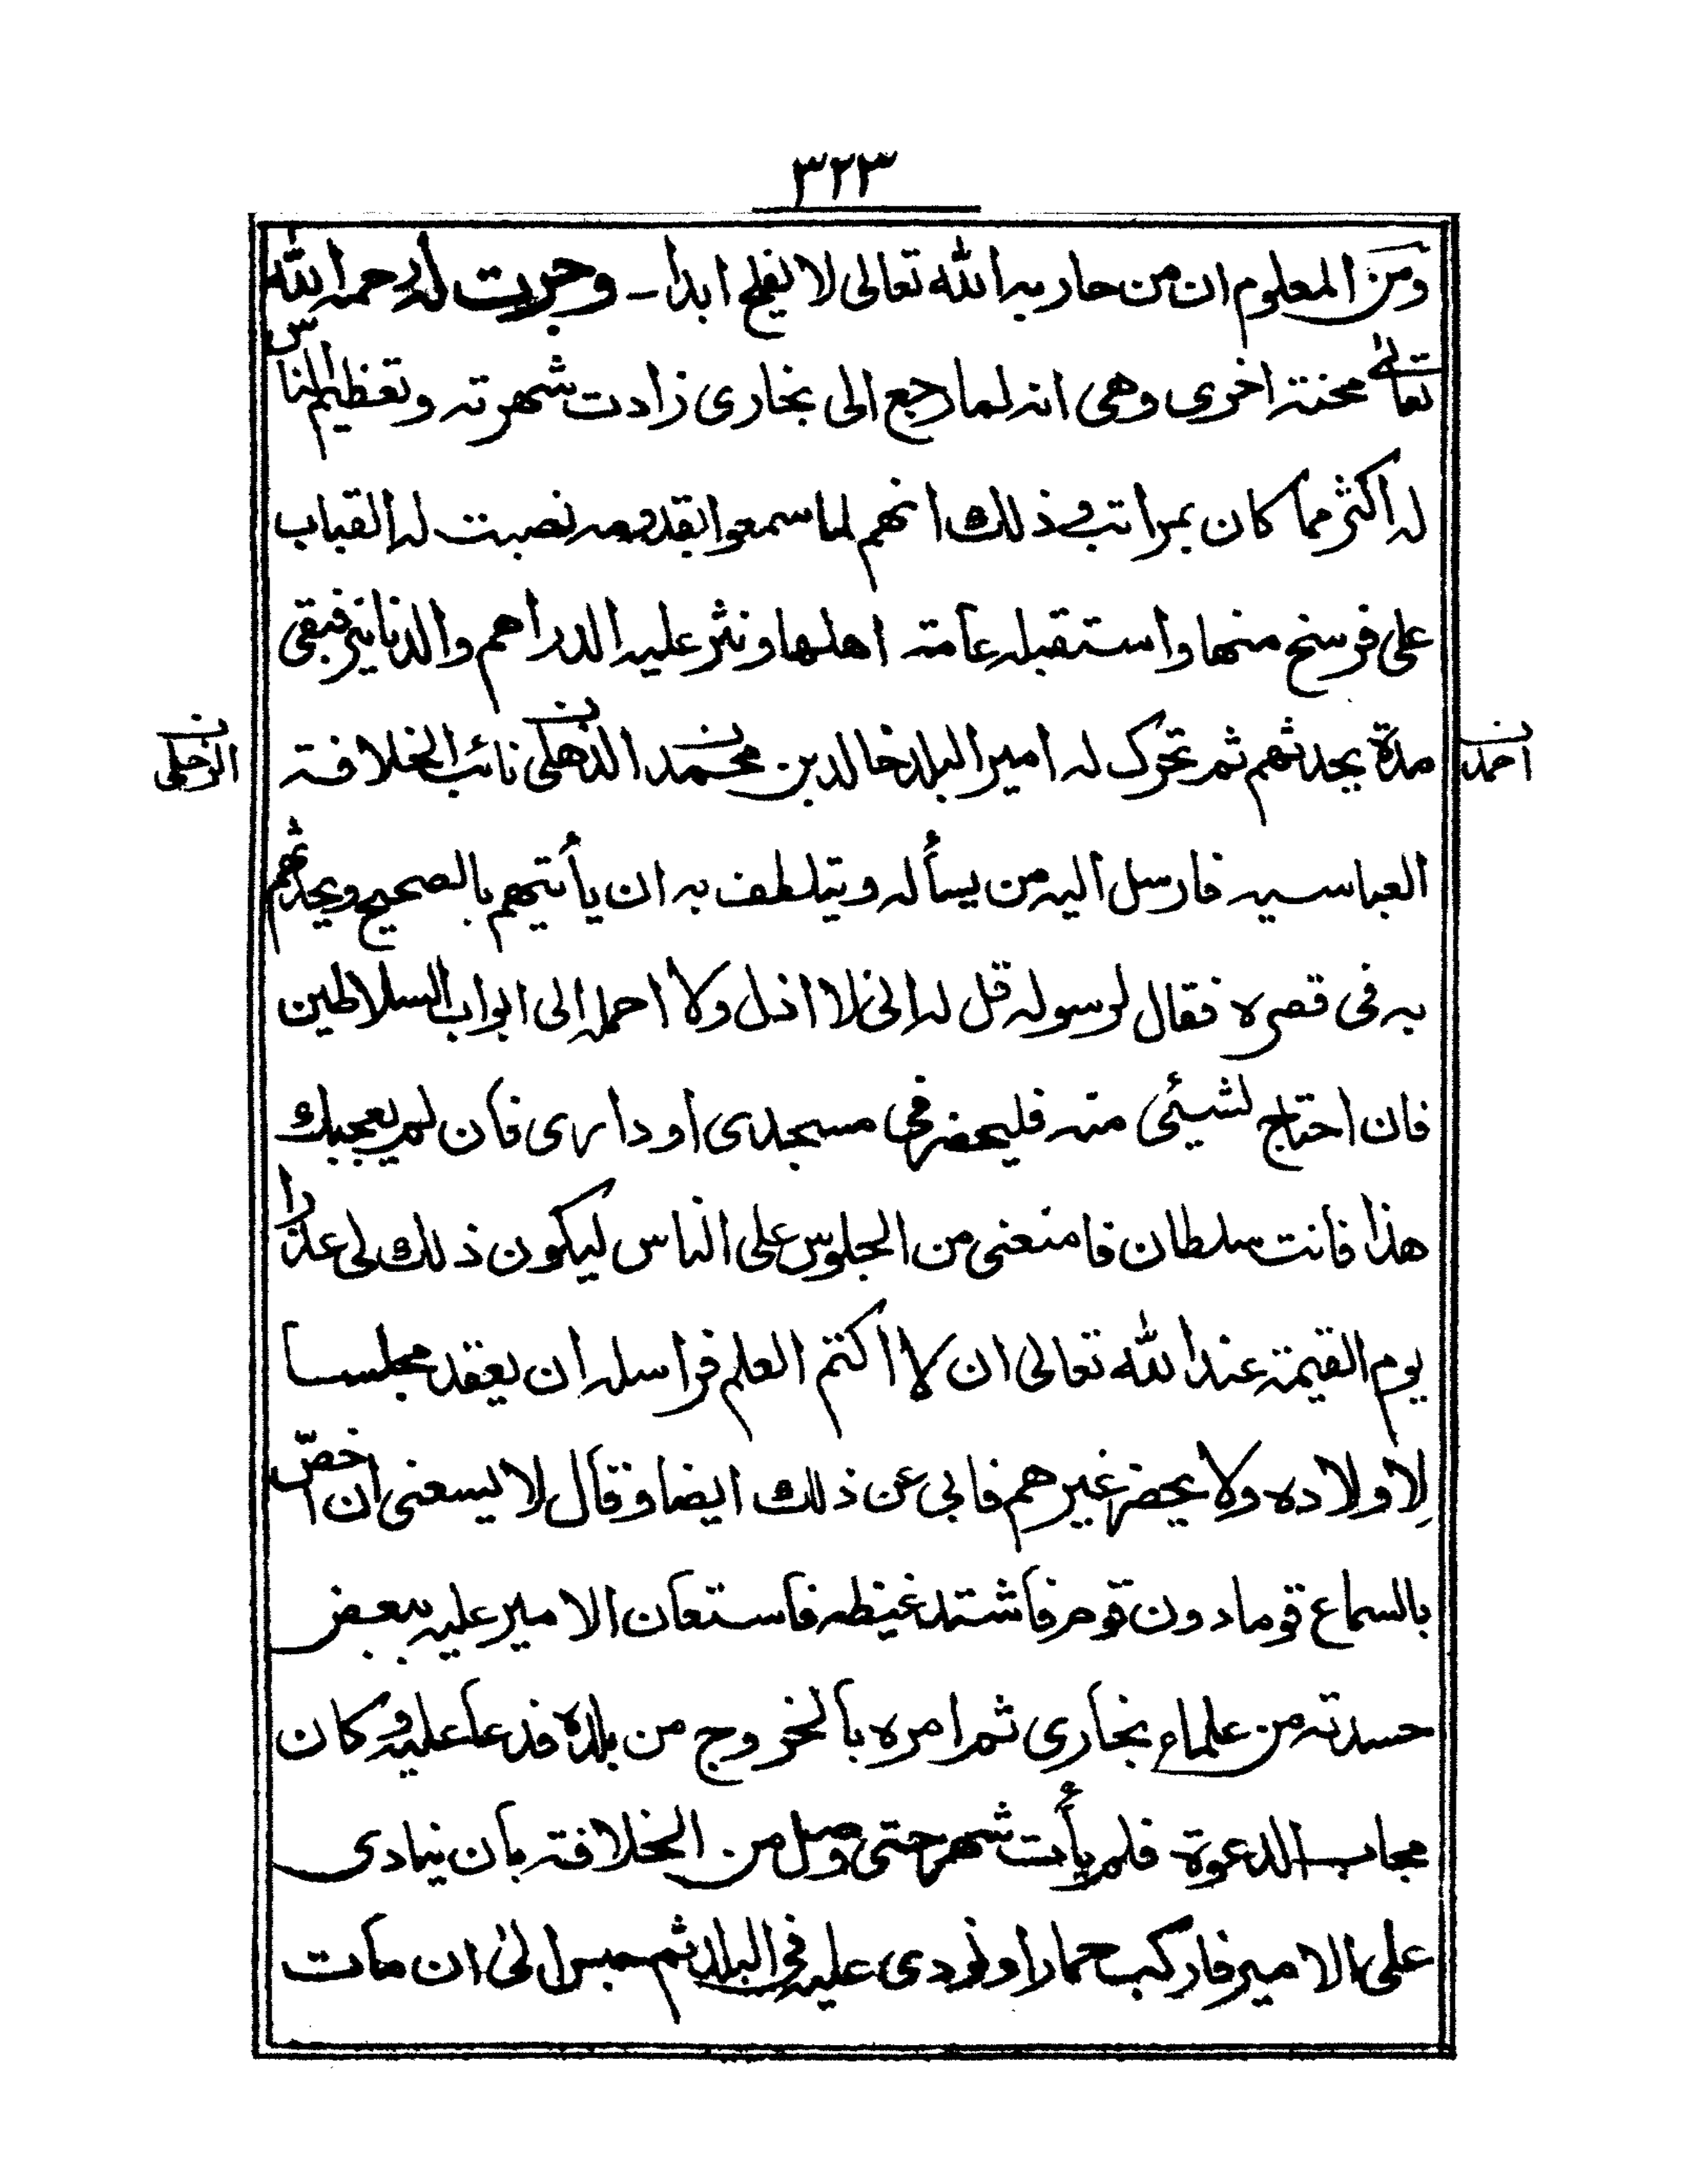 ٣٢٣
ومن المعلوم ان من حاربه الله تعالى لا يفلح ابدا - وجرت له رحمه الله
تعالى محنة اخرى وهى انه لما رجع الى بخارى زادت شهرته وتعظيم الناس
له اكثر مما كان بمراتب وذلك انهم لما سمعوا بقدومه نصبت له القباب
على فرسخ منها واستقبله عامة اهلها ونثر عليه الدراهم والدنانير فبقى
مدة يحدثهم ثم تحرك له امير البلد خالد بن محمد الذهلى نائب الخلافة
احمد ن
ن
العباسيه فارسل اليه من يسأله ويتلطف به ان يأتيهم بالصحيح ويحدثهم
به فى قصره فقال لرسوله قل له انى لا اذل ولا احمله الى ابواب السلاطين
فان احتاج لشيئى منه فليحضر فى مسجدى او دارى فان لم يعجبك
هذا فانت سلطان فامنعنى من الجلوس على الناس ليكون ذلك لى عذرا
يوم القيمة عند الله تعالى ان لا اكتم العلم فراسله ان يعقد مجلسا
لاولاده ولا يحضر غيرهم فابى عن ذلك ايضا وقال لا يسعنى ان اخصّ
بالسماع قوما دون قوم فاشتد غيظه فاستعان الامير عليه ببعض
حسدته من علماء بخارى ثم امره بالخروج من بلده فدعا عليه وكان
مجاب الدعوة فلم يأت شهر حتى وصل من الخلافة بان ينادى
على الامير فاركب حمارا ونودى عليه فى البلد ثم حبس الى ان مات